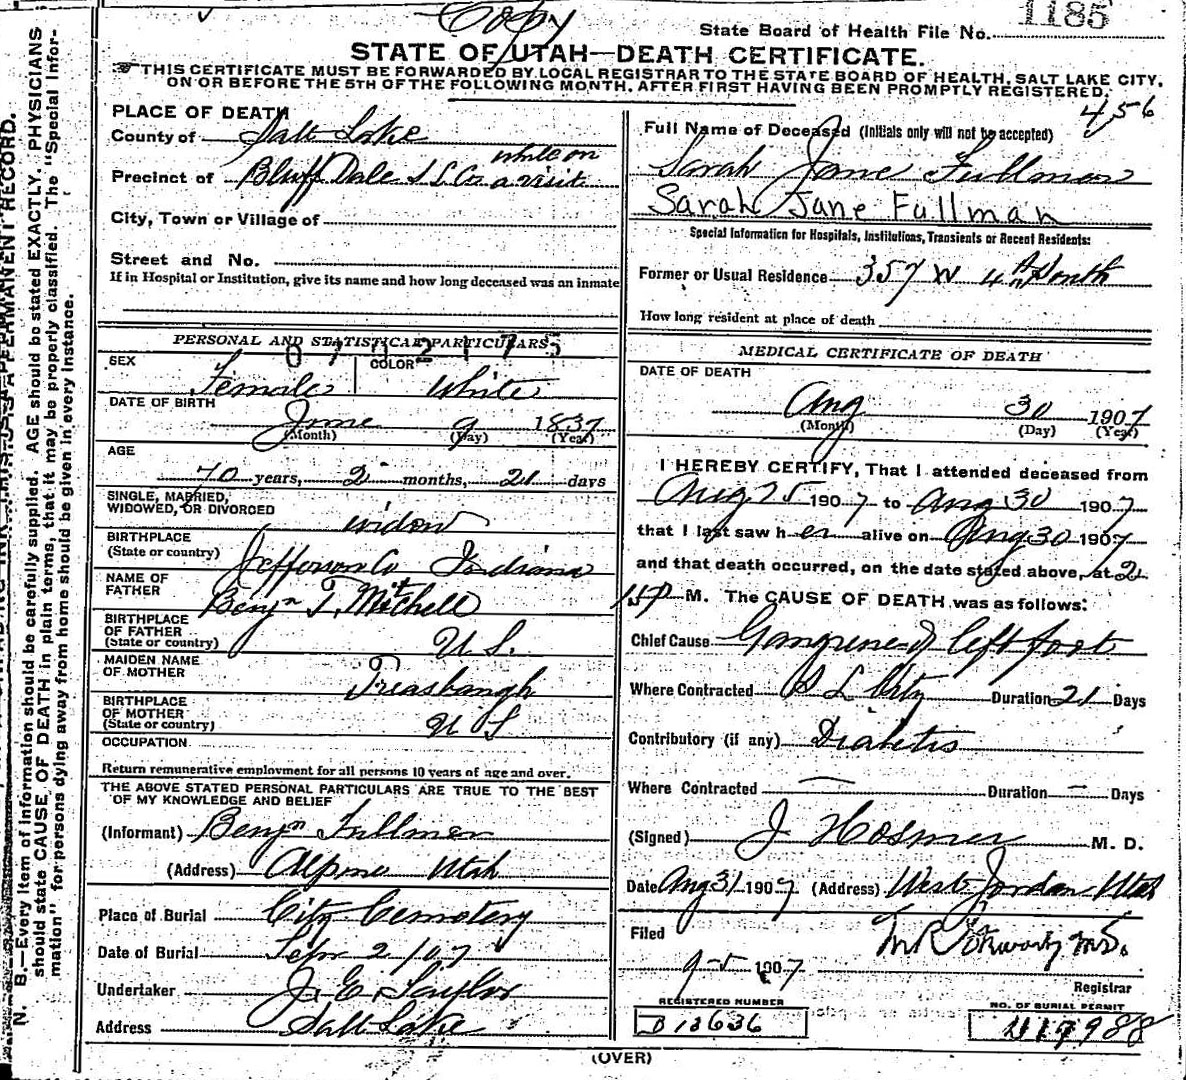 Copy
State Board of Health File No. 1185
STATE OF UTAH—DEATH CERTIFICATE.
THIS CERTIFICATE MUST BE FORWARDED BY LOCAL REGISTRAR TO THE STATE BOARD OF HEALTH, SALT LAKE CITY,
ON OR BEFORE THE 5TH OF THE FOLLOWING MONTH, AFTER FIRST HAVING BEEN PROMPTLY REGISTERED.
456
PLACE OF DEATH
County of Salt Lake
while on
Precinct of Bluff Dale S L Co a visit
City, Town or Village of
Street and No.
If in Hospital or Institution, give its name and how long deceased was an inmate
PERSONAL AND STATISTICAL PARTICULARS
SEX Female COLOR White
DATE OF BIRTH June 9 1837
(Month) (Day) (Year)
AGE
70 years, 2 months, 21 days
SINGLE, MARRIED,
WIDOWED, OR DIVORCED widow
BIRTHPLACE
(State or country) Jefferson Co Indiana
NAME OF
FATHER Benjn T. Mitchell
BIRTHPLACE
OF FATHER
(State or country) U S.
MAIDEN NAME
OF MOTHER
BIRTHPLACE
OF MOTHER
(State or country) U S
OCCUPATION
Return remunerative employment for all persons 10 years of age and over.
THE ABOVE STATED PERSONAL PARTICULARS ARE TRUE TO THE BEST
OF MY KNOWLEDGE AND BELIEF
(Informant) Benjn Fullmer
(Address) Alpine Utah
Place of Burial City Cemetery
Date of Burial Sept 2/07
Undertaker J. E. Taylor
Address Salt Lake
Full Name of Deceased (Initials only will not be accepted)
Sarah Jane Fullmer
Sarah Jane Fullman
Special Information for Hospitals, Institutions, Transients or Recent Residents:
Former or Usual Residence 357 W 4th South
How long resident at place of death
MEDICAL CERTIFICATE OF DEATH
DATE OF DEATH
Aug 30 1907
(Month) (Day) (Year)
I HEREBY CERTIFY, That I attended deceased from
Aug 25 1907 to Aug 30 1907
that I last saw her alive on Aug 30 1907
and that death occurred, on the date stated above, at 2
M. The CAUSE OF DEATH was as follows:
Chief Cause Gangrene of left foot
Where Contracted S L City Duration 21 Days
Contributory (if any) Diabetis
Where Contracted — Duration — Days
(Signed) J Hosmer M. D.
Date Aug 31 1907 (Address) West Jordan Utah
Filed
9-5 1907
Registrar
REGISTERED NUMBER
B 13636
NO. OF BURIAL PERMIT
(OVER)
N. B.—Every item of information should be carefully supplied. AGE should be stated EXACTLY. PHYSICIANS
should state CAUSE OF DEATH in plain terms, that it may be properly classified. The "Special Infor-
mation" for persons dying away from home should be given in every instance.